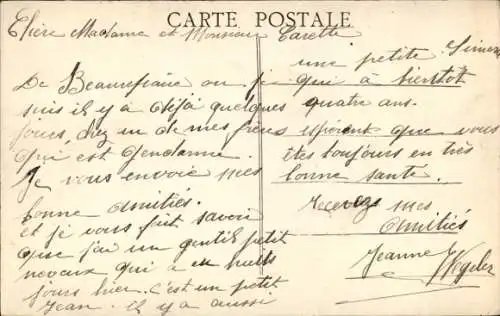 CARTE POSTALE
Chère Madame et Monsieur Carette
De Beaurepaire ou je
suis il y a déjà quelques
jours, chez un de mes frères
qui est Gendarme.
Je vous envoie mes
bonne Amitiés.
et je vous fait savoir
que j'ai un gentil petit
neveux qui a eu huits
jours hier. c'est un petit
Jean. il y a aussi
une petite Simone
qui à bientôt
quatre ans.
espérent que vous
êtes toujours en très
bonne sante.
Recevez mes
Amitiés
Jeanne Wegeler